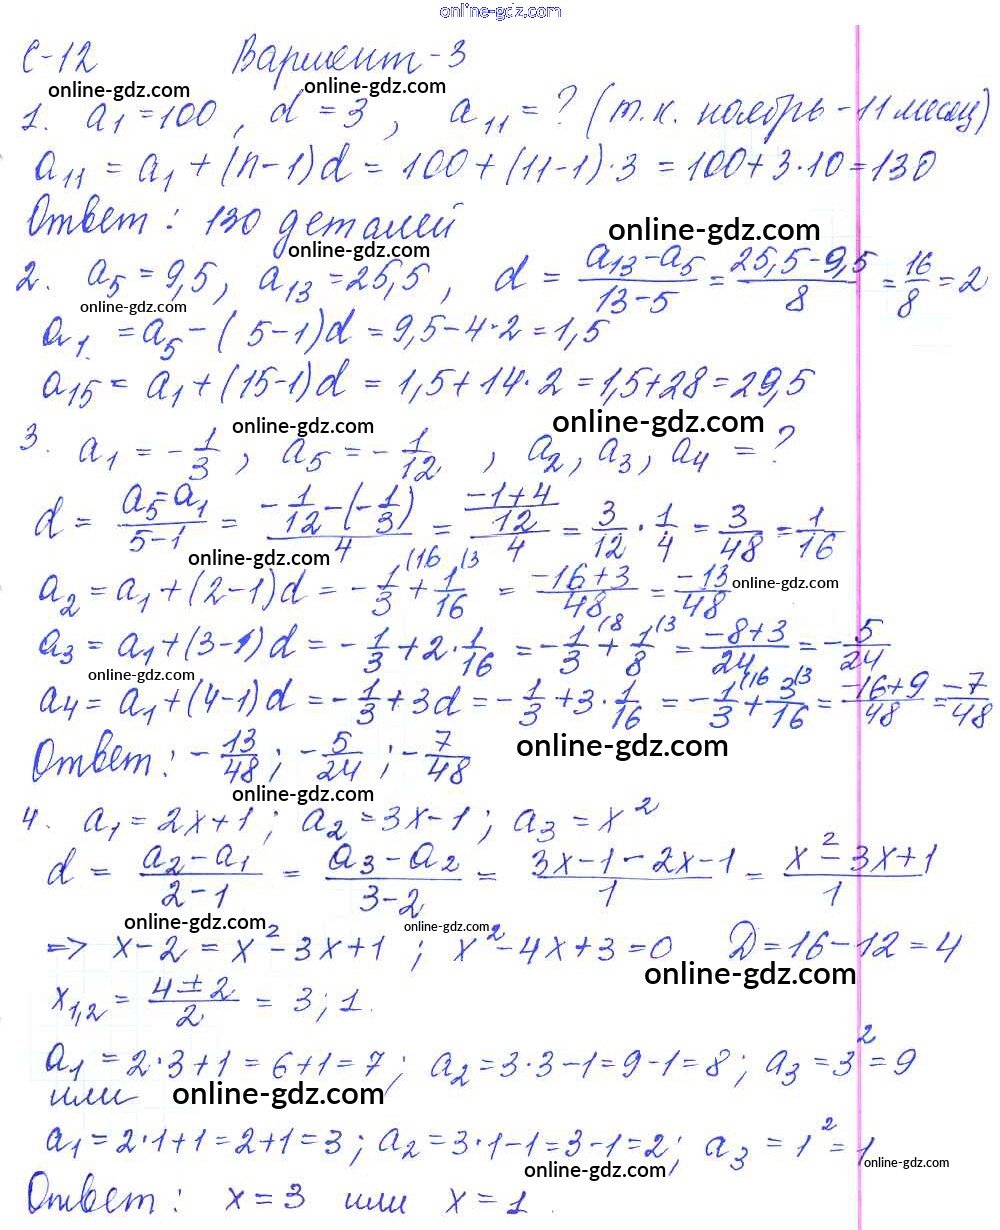 online-gdz.com
С-12 Вариант-3
online-gdz.com online-gdz.com
1. a₁ = 100, d = 3, a₁₁ = ? (т.к. ноябрь - 11 месяц)
a₁₁ = a₁ + (n-1)d = 100 + (11-1)·3 = 100 + 3·10 = 130
Ответ: 130 деталей
online-gdz.com online-gdz.com
2. a₅ = 9,5, a₁₃ = 25,5, d = (a₁₃ - a₅)/(13-5) = (25,5 - 9,5)/8 = 16/8 = 2
online-gdz.com
a₁ = a₅ - (5-1)d = 9,5 - 4·2 = 1,5
a₁₅ = a₁ + (15-1)d = 1,5 + 14·2 = 1,5 + 28 = 29,5
online-gdz.com online-gdz.com
3. a₁ = -1/3, a₅ = -1/12, a₂, a₃, a₄ = ?
d = (a₅ - a₁)/(5-1) = (-1/12 - (-1/3))/4 = ((-1+4)/12)/4 = 3/12 · 1/4 = 3/48 = 1/16
online-gdz.com
a₂ = a₁ + (2-1)d = -1/3⁽¹⁶ + 1/16⁽³ = (-16+3)/48 = -13/48
online-gdz.com
a₃ = a₁ + (3-1)d = -1/3 + 2·1/16 = -1/3⁽⁸ + 1/8⁽³ = (-8+3)/24 = -5/24
online-gdz.com
a₄ = a₁ + (4-1)d = -1/3 + 3d = -1/3 + 3·1/16 = -1/3⁽¹⁶ + 3/16⁽³ = (-16+9)/48 = -7/48
Ответ: -13/48; -5/24; -7/48
online-gdz.com
online-gdz.com
4. a₁ = 2x+1; a₂ = 3x-1; a₃ = x²
d = (a₂ - a₁)/(2-1) = (a₃ - a₂)/(3-2) = (3x-1-2x-1)/1 = (x²-3x+1)/1
online-gdz.com online-gdz.com
=> x-2 = x²-3x+1; x²-4x+3=0 D=16-12=4
online-gdz.com
x₁,₂ = (4±2)/2 = 3; 1.
a₁ = 2·3+1 = 6+1 = 7; a₂ = 3·3-1 = 9-1 = 8; a₃ = 3² = 9
или online-gdz.com
a₁ = 2·1+1 = 2+1 = 3; a₂ = 3·1-1 = 3-1 = 2; a₃ = 1² = 1
online-gdz.com online-gdz.com
Ответ: x=3 или x=1.